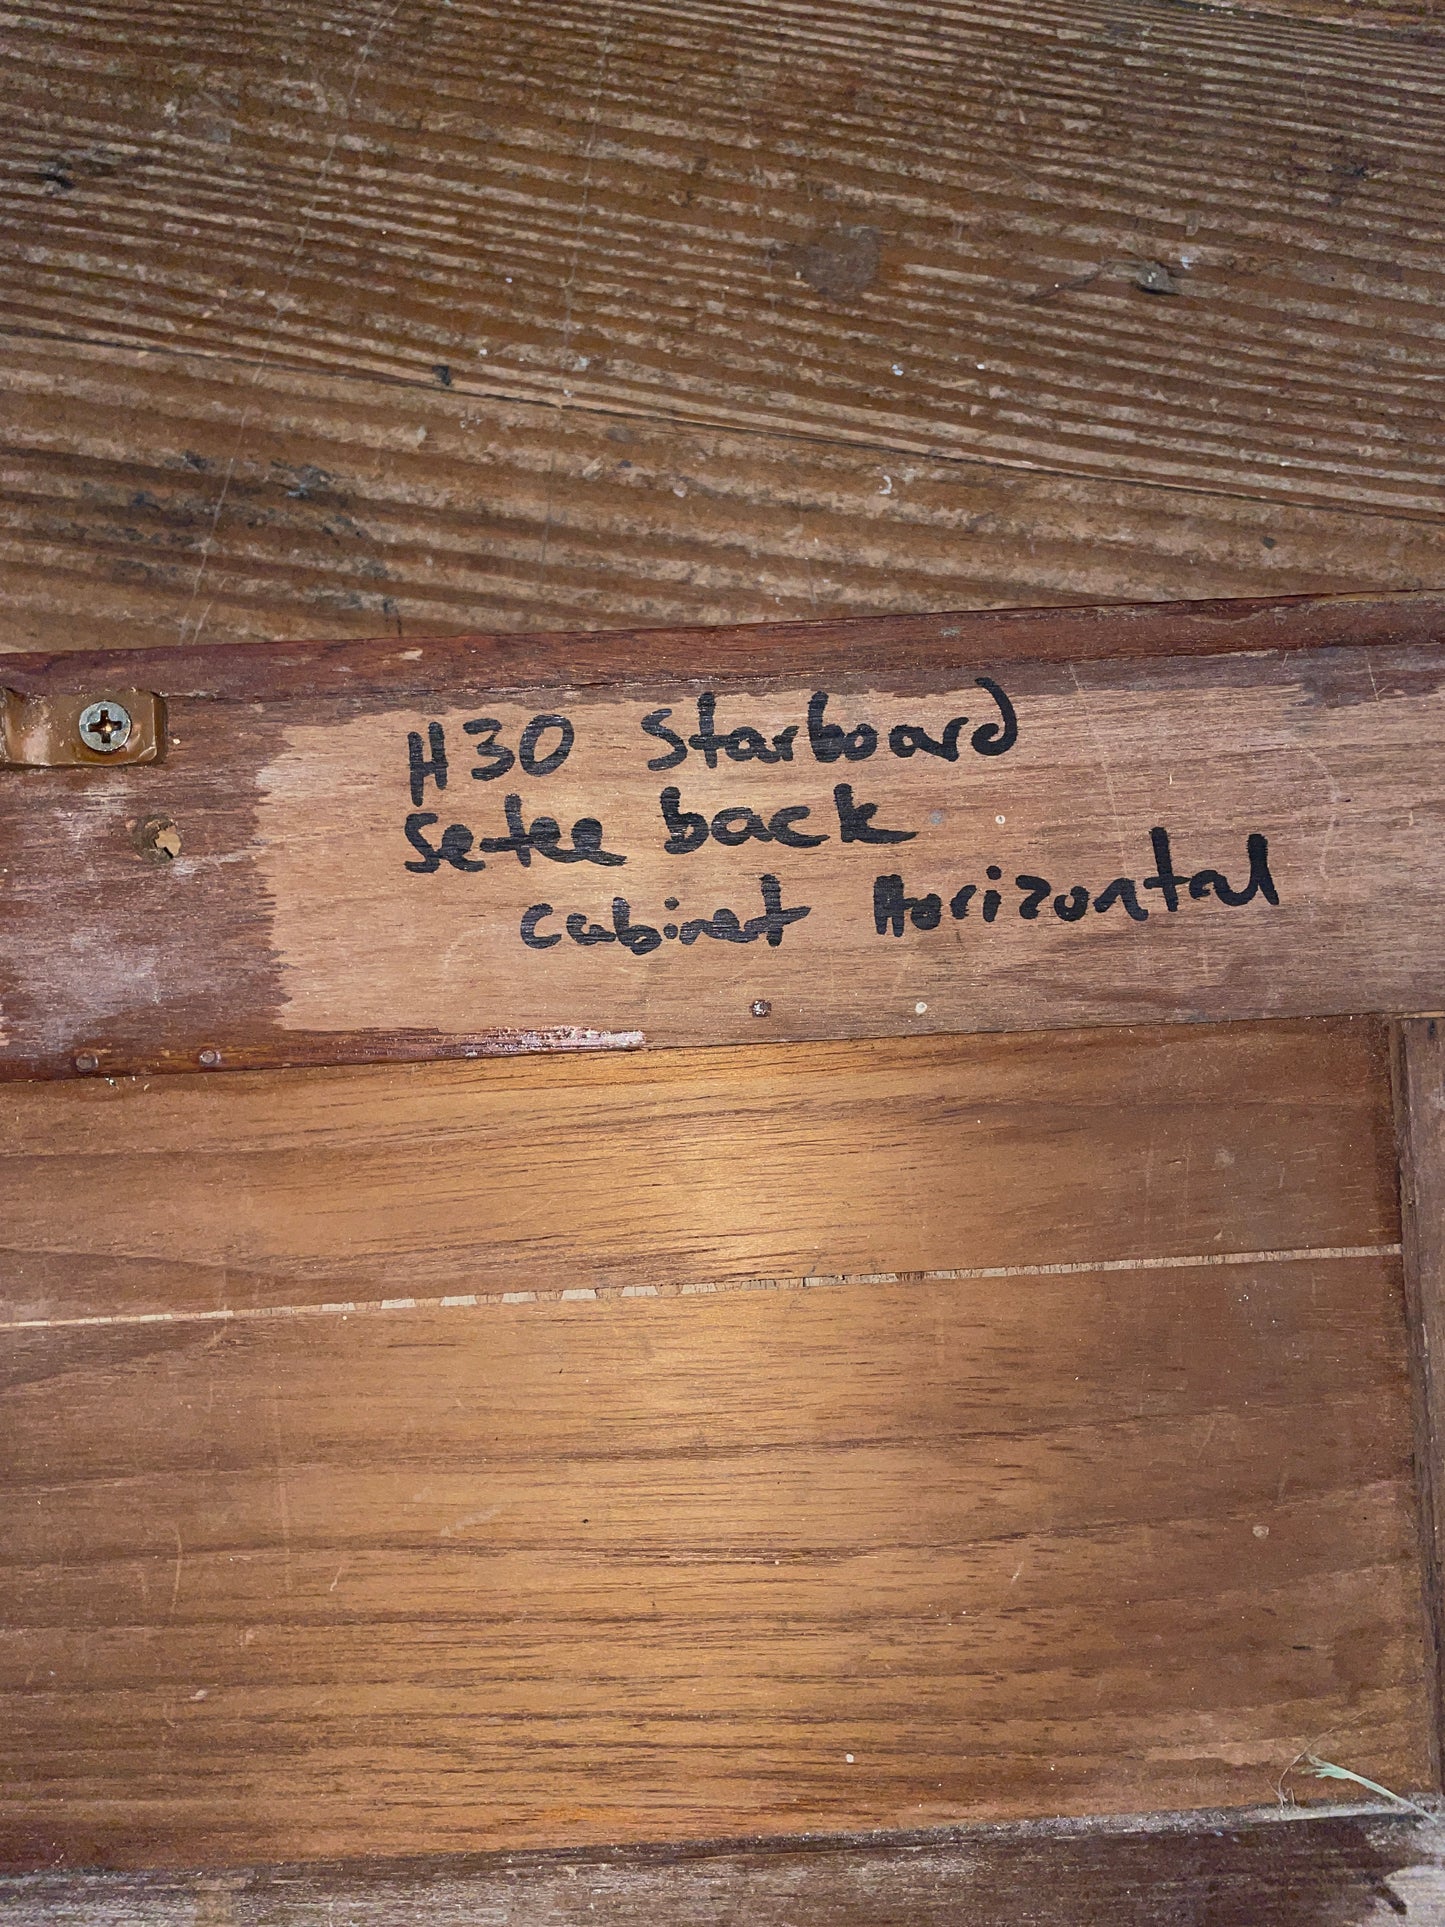 H30 Starboard
Setee back
Cabinet Horizontal